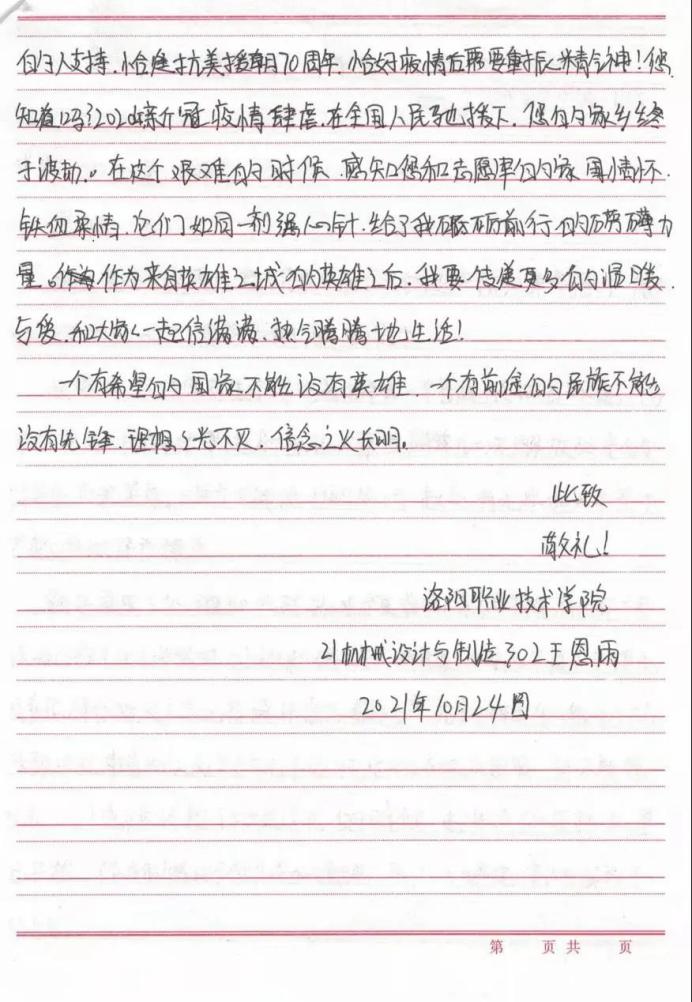 的人支持,恰逢抗美援朝70周年,恰好疫情后需要重振精神!您
知道吗?2020新冠疫情肆虐,在全国人民驰援下,您的家乡终
于波动。在这个艰难的时候,感知您和志愿军的家国情怀,
铁血柔情,它们如同一剂强心针,给了我砥砺前行的磅礴力
量。作为来自英雄之城的英雄之后,我要传递更多的温暖
与爱,和大家一起信满满,热气腾腾地生活!
一个有希望的国家不能没有英雄,一个有前途的民族不能
没有先锋,理想之光不灭,信念之火长明。
此致
敬礼!
洛阳职业技术学院
21机械设计与制造302王恩雨
2021年10月24日
第 页 共 页